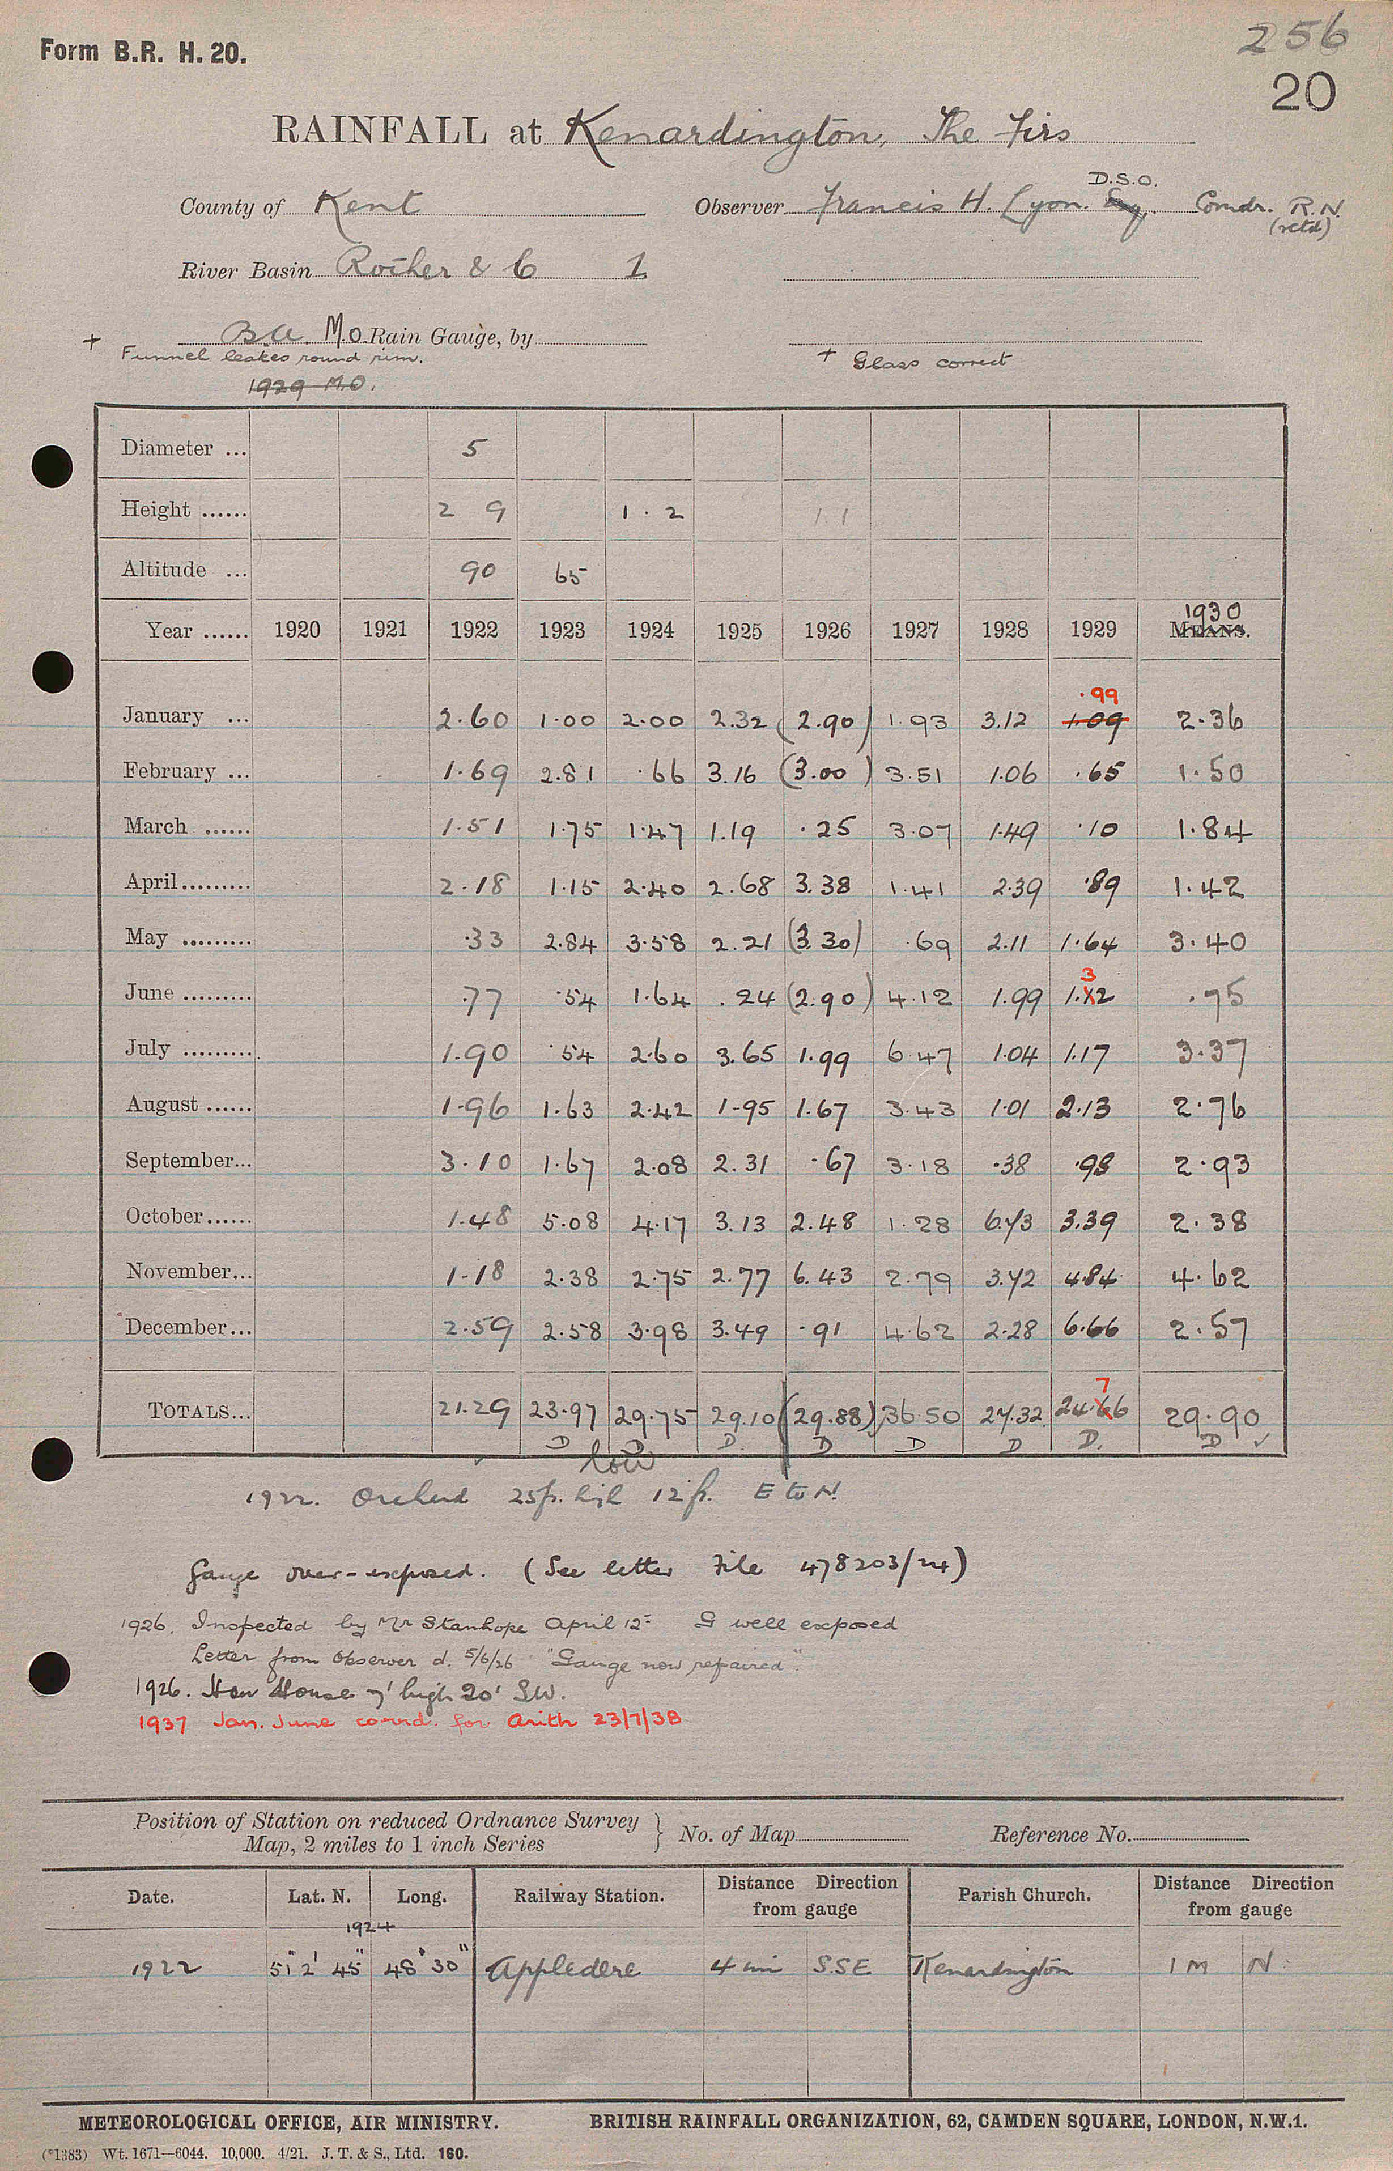 256
Form B.R. H. 20.
20
RAINFALL at Kenardington, The Firs
D.S.O.
County of Kent Observer Francis H. Lyon. Esq. Comdr. R.N.
(retd)
River Basin Rother & C 1
B.A. M.O. Rain Gauge, by
+ Funnel leakes round rim. + Glass correct
1929 M.O.
Diameter ... 5
Height ...... 2 9 1 . 2 1 . 1
Altitude ... 90 65
1930
Year ...... 1920 1921 1922 1923 1924 1925 1926 1927 1928 1929 MEANS.
.99
January ... 2.60 1.00 2.00 2.32 (2.90) 1.93 3.12 1.09 2.36
February ... 1.69 2.81 .66 3.16 (3.00) 3.51 1.06 .65 1.50
March ...... 1.51 1.75 1.47 1.19 .25 3.07 1.49 .10 1.84
April......... 2.18 1.15 2.40 2.68 3.38 1.41 2.39 .89 1.42
May ......... .33 2.84 3.58 2.21 (3.30) .69 2.11 1.64 3.40
3
June ......... .77 .54 1.64 .24 (2.90) 4.12 1.99 1.22 .75
July ......... 1.90 .54 2.60 3.65 1.99 6.47 1.04 1.17 3.37
August ...... 1.96 1.63 2.42 1.95 1.67 3.43 1.01 2.13 2.76
September... 3.10 1.67 2.08 2.31 .67 3.18 .38 .98 2.93
October...... 1.48 5.08 4.17 3.13 2.48 1.28 6.43 3.39 2.38
November... 1.18 2.38 2.75 2.77 6.43 2.79 3.42 4.84 4.62
December... 2.59 2.58 3.98 3.49 .91 4.62 2.28 6.66 2.57
7
TOTALS... 21.29 23.97 29.75 29.10 (29.88) 36.50 27.32 24.66 29.90
D D D. D D D D. D ✓
low
1922. Orchard 25ft. high 12ft. E to N.
Gauge over-exposed. (See letter File 478203/24)
1926. Inspected by Mr Stanhope April 12= G well exposed
Letter from Observer d. 5/6/26 "Gauge now repaired".
1926. New House 7' high 20' SW.
1937 Jan. June corrd. for Arith 23/7/38
Position of Station on reduced Ordnance Survey
Map, 2 miles to 1 inch Series } No. of Map Reference No.
Date. Lat. N. Long. Railway Station. Distance Direction from gauge Parish Church. Distance Direction from gauge
1924
1922 51° 2' 45" 48' 30" Appledore 4 mi SSE Kenardington 1 M N
METEOROLOGICAL OFFICE, AIR MINISTRY. BRITISH RAINFALL ORGANIZATION, 62, CAMDEN SQUARE, LONDON, N.W.1.
(*1383) Wt. 1671—6044. 10,000. 4/21. J. T. & S., Ltd. 160.